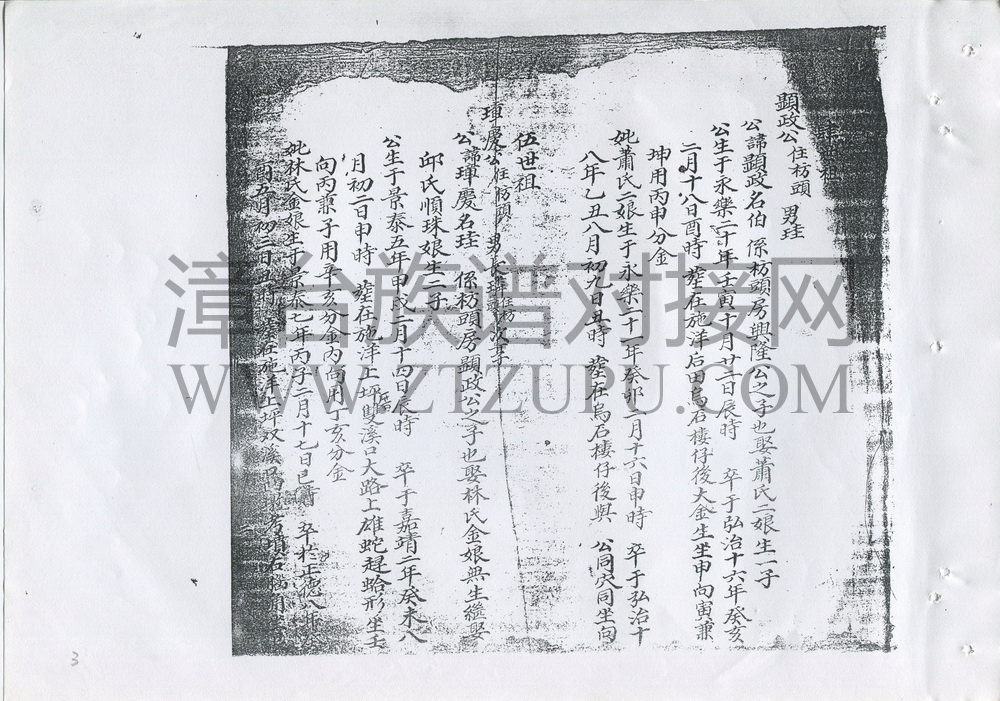 世祖
顯政公住枋頭 男珪
公諱顯政名伯 係枋頭房興隆公之子也娶蕭氏二娘生一子
公生于永樂二十年壬寅十月廿二日辰時 卒于弘治十六年癸亥
二月十八日酉時 葬在施洋后田烏石樓仔後大金生坐申向寅兼
坤用丙申分金
妣蕭氏二娘生于永樂二十一年癸卯二月十六日申時 卒于弘治十
八年乙丑八月初九日丑時 葬在烏石樓仔後與 公同穴同坐向
伍世祖
琿慶公住枋頭 男長
公諱琿慶名珪 係枋頭房顯政公之子也娶林氏金娘無生繼娶
邱氏順珠娘生二子
公生于景泰五年甲戌二月十四日辰時 卒于嘉靖二年癸未八
月初二日申時 葬在施洋上坪雙溪口大路上雄蛇趕蛤形坐壬
向丙兼子用辛亥分金內向用丁亥分金
妣林氏金娘生于景泰七年丙子二月十七日巳時 卒於正德八年癸
酉五月初三日丑時 葬在施洋上坪双溪
3
漳台族谱对接网
WWW.ZTZUPU.COM